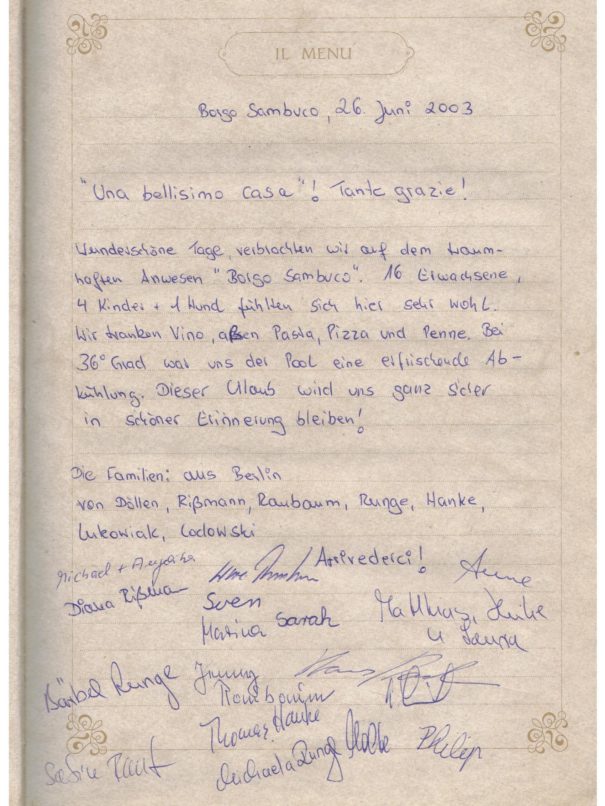 IL MENU
Borgo Sambuco, 26. Juni 2003
"Una bellisimo casa"! Tante grazie!
Wunderschöne Tage verbrachten wir auf dem traum-
haften Anwesen "Borgo Sambuco". 16 Erwachsene,
4 Kinder + 1 Hund fühlten sich hier sehr wohl.
Wir tranken Vino, aßen Pasta, Pizza und Penne. Bei
36° Grad war uns der Pool eine erfrischende Ab-
kühlung. Dieser Urlaub wird uns ganz sicher
in schöner Erinnerung bleiben!
Die Familien: aus Berlin
von Döllen, Rißmann, Raubaum, Runge, Hanke,
Lukowiak, Lodowski
Arrivederci!
Michael + Angelika
Anne
Diana Rißmann
Sven
Marina Sarah
Matthias Hanke
u Laura
Bärbel Runge
Jenny
Raubaum
Thomas Hanke
Michaela Runge
Philip
Sabine